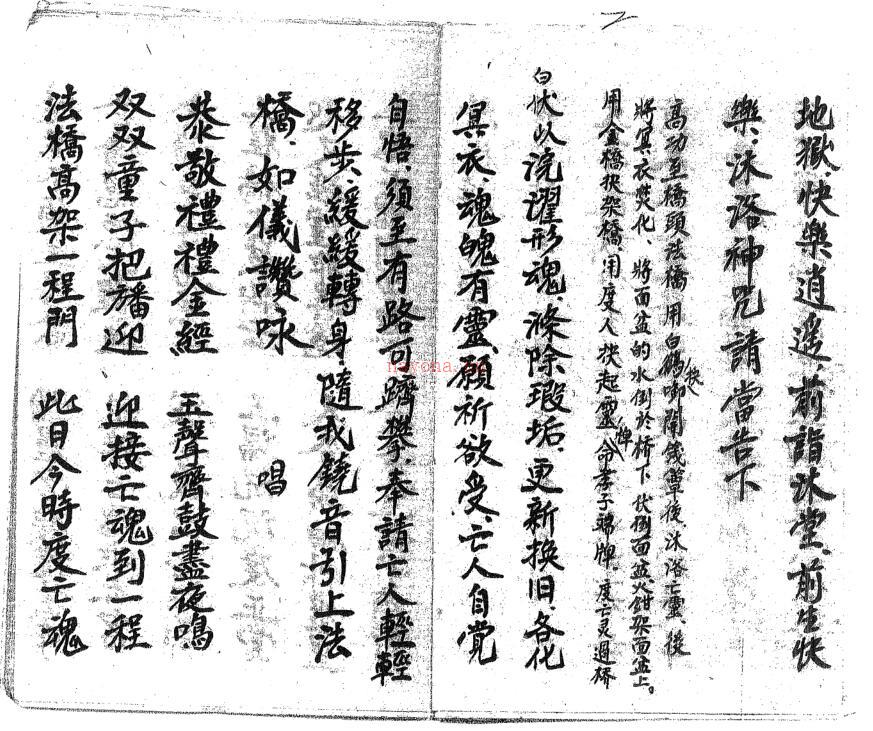 地獄、快樂逍遥、前詣沐堂、前生快
樂、沐浴神咒請當告下
高功至橋頭法橋用白鶴啣開錢簞後、沐浴亡靈、後
將冥衣焚化、將面盆的水倒於桥下 伏倒面盆火鉗架面盆上。
用金橋 架橋、用度人 扶起靈 命孝子端牌、度亡灵過桥
白 伏以浣濯形魂、滌除瑕垢、更新换旧、各化
冥衣、魂魄有靈、願祈欲受、亡人自觉
自悟、須至有路可躋攀、奉請亡人輕輕
移步、緩緩轉身、隨我鐃音引上法
橋、如儀讚咏 唱
恭敬禮禮金經 玉聲齊鼓盡夜鳴
双双童子把旛迎 迎接亡魂到一程
法橋高架一程門 此日今時度亡魂
nayona.cn